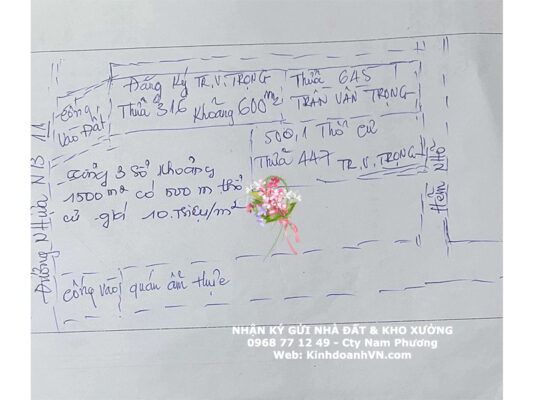 Đăng Ký TR.V.TRỌNG
Thửa 316 Khoảng 600m2
Thửa 645
TRẦN VĂN TRỌNG
Cổng
vào Đất
500,1 Thổ cư
Thửa 447 TR.V.TRỌNG
Cổng 3 Sổ Khoảng
1500m2 có 500m thổ
cư giá 10.Triệu/m2
Đường Nhựa NB 1A
Hẻm Nhỏ
cổng vào quán ẩm thực
NHẬN KÝ GỬI NHÀ ĐẤT & KHO XƯỞNG
0968 77 12 49 - Cty Nam Phương
Web: KinhdoanhVN.com